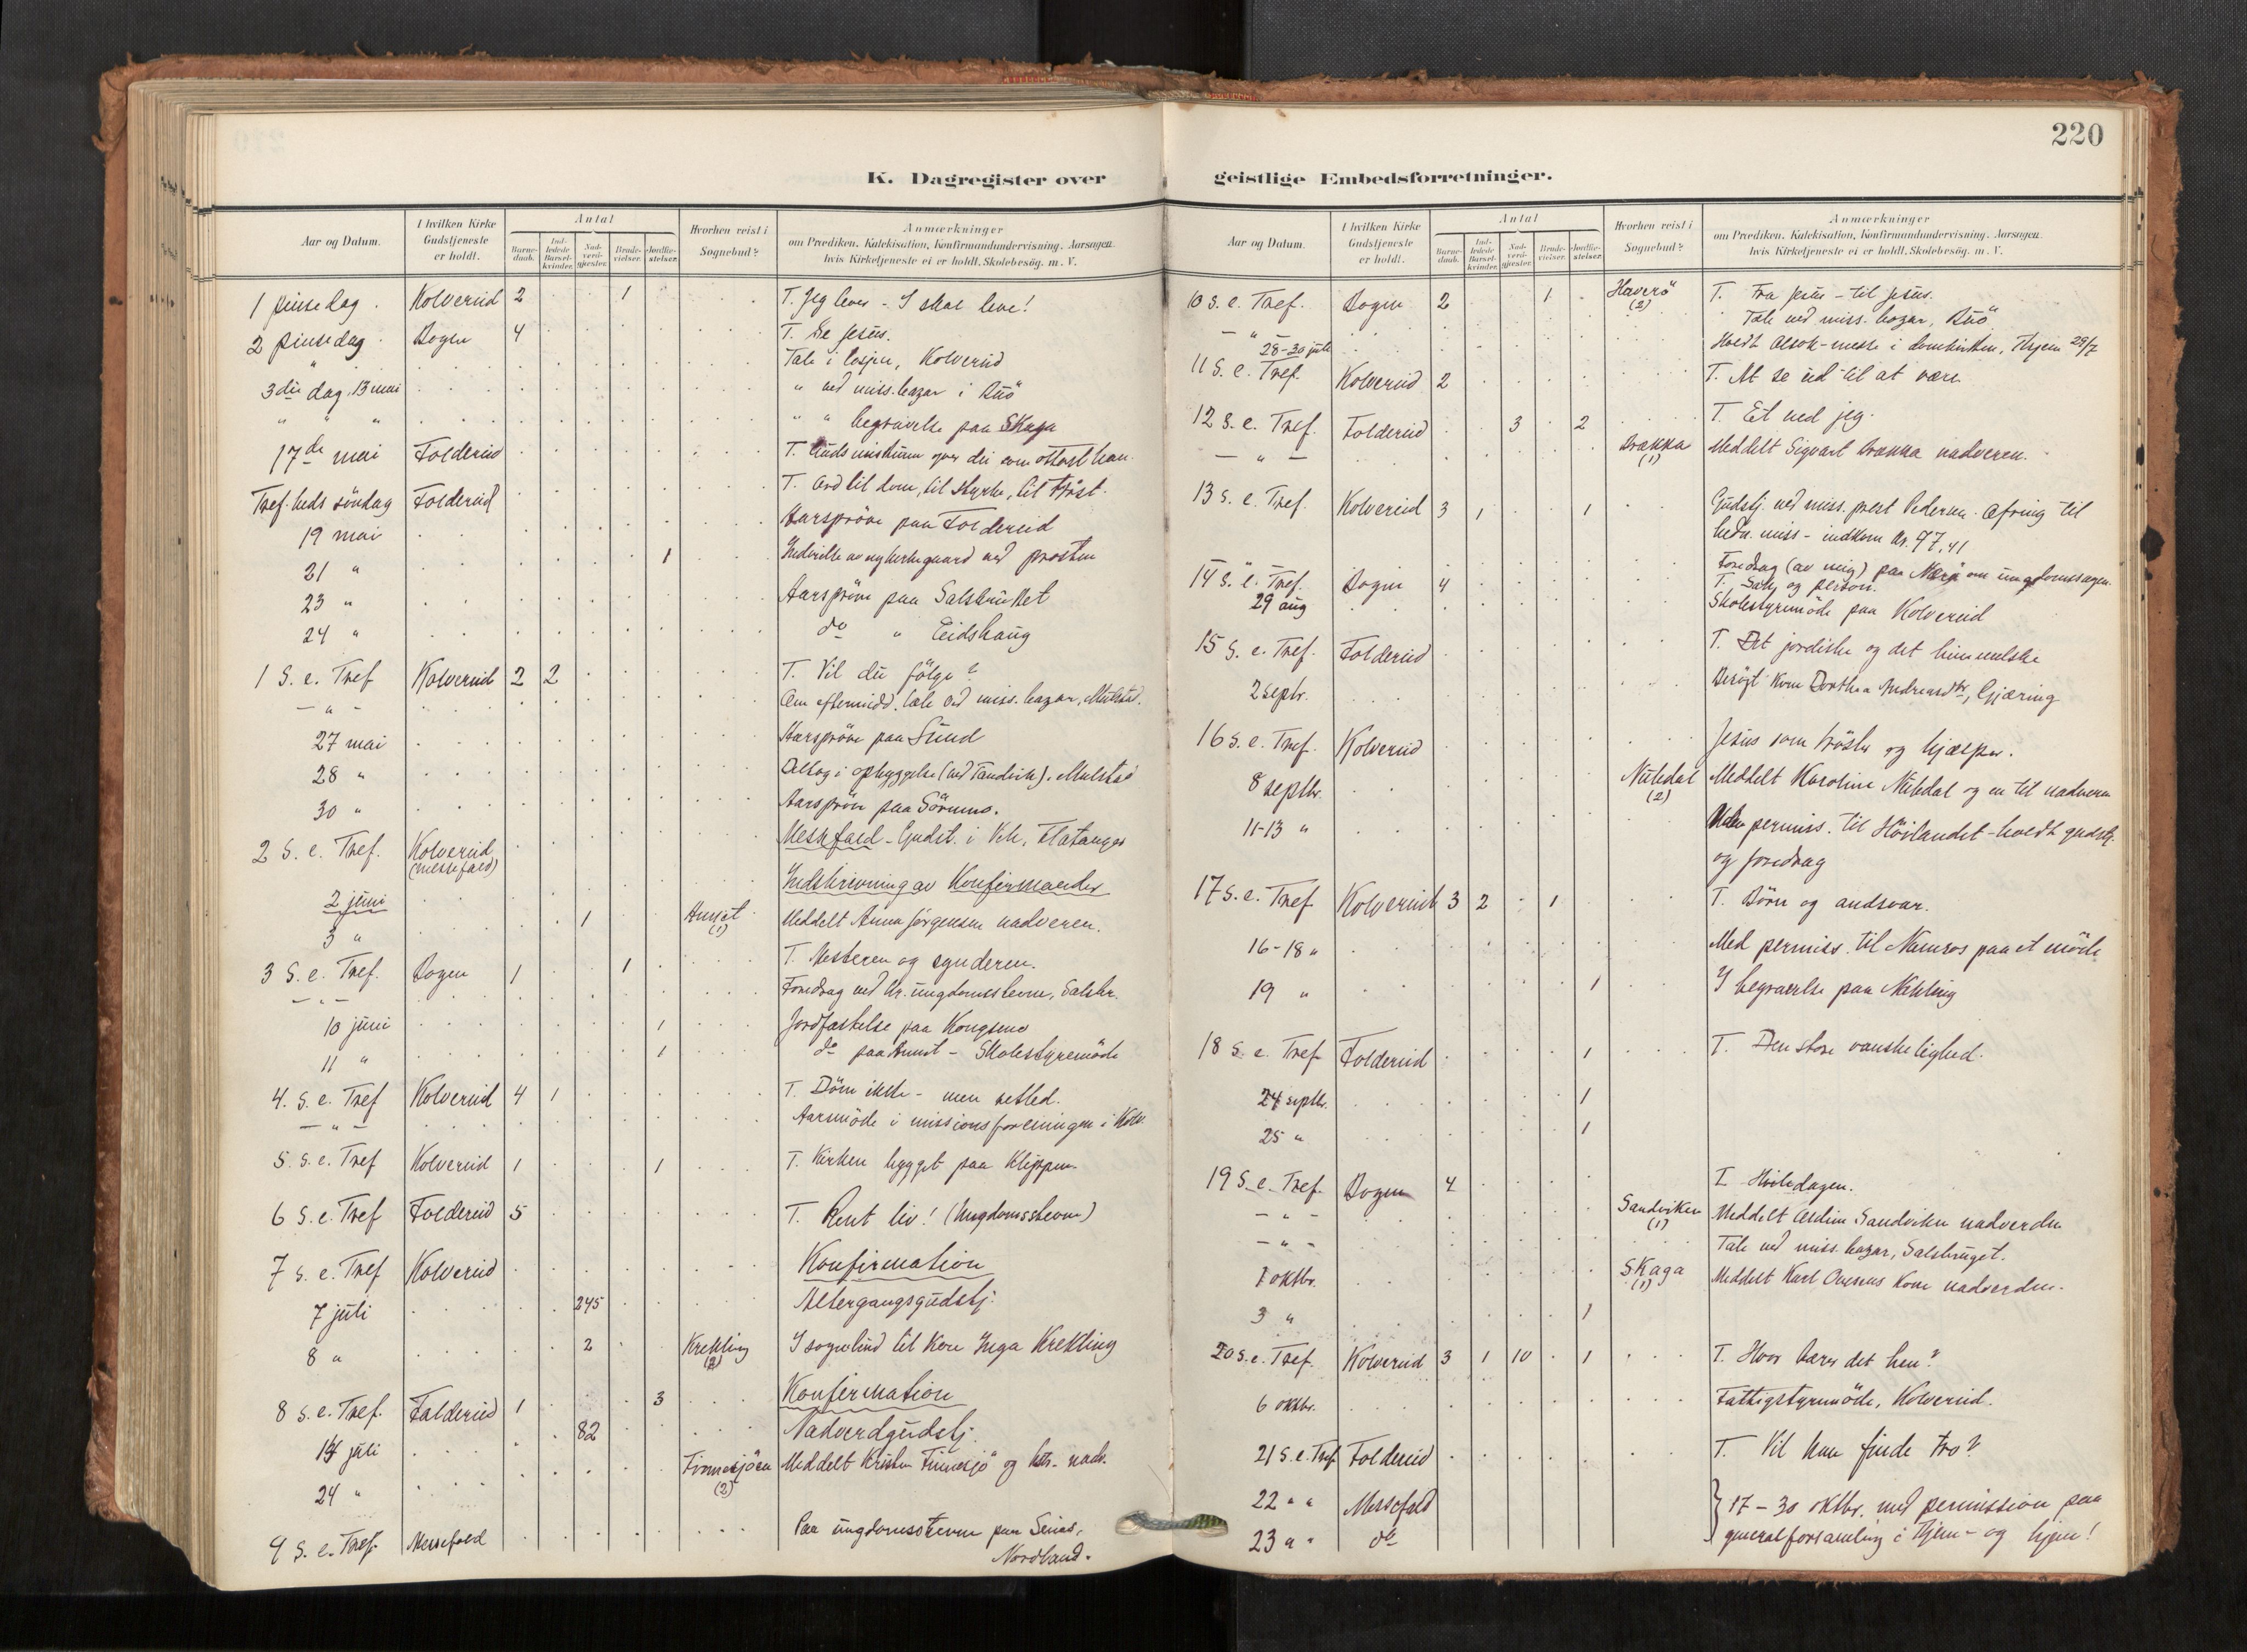 220
K. Dagregister over geistlige Embedsforretninger.
Aar og Datum. I hvilken Kirke Gudstjeneste er holdt. Antal Barnedaab. Indledede Barselkvinder. Nadverdgjester. Brudevielser. Jordfæstelser. Hvorhen reist i Sognebud? Anmærkninger om Prædiken, Katekisation, Konfirmandundervisning, Aarsagen hvis Kirketjeneste ei er holdt, Skolebesög. m. V.
1 pinsedag. Kolvereid 2 1 T. Jeg lever - I skal leve!
2 pinsedag. Bogen 4 T. Se Jesus.
" Tale i losjen, Kolvereid
3die dag, 13 mai " ved miss. bazar i Buö
" " " " " begravelse paa Skaga
17de mai Foldereid T. Guds miskunn over dei som ottast han.
Tref.heds söndag Foldereid T. Ord til dom, til styrke, til tröst.
19 mai Aarspröve paa Foldereid
21 " 1 Indvielse av ny kirkegaard ved prosten
23 " Aarspröve paa Salsbruket
24 " do " Eidshaug
1 S. e. Tref Kolvereid 2 2 T. Vil du fölge?
- " - Om eftermidd. tale ved miss. bazar, Mulstad.
27 mai Aarspröve paa Sund
28 " Deltog i opbyggelse (ved Tandvik). Mulstad
30 " Aarspröve paa Sörumo.
2 S. e. Tref. Kolvereid (messefald) Messefald - Gudst. i Vik, Flatanger
2 juni Indskrivning av Konfirmander
3 " 1 Aunet (1) Meddelt Anna Jörgensen nadveren.
3 S. e. Tref. Bogen 1 1 T. Mesteren og synderen.
- " - Foredrag ved kr. ungdomsstevne, Salsbr.
10 juni 1 Jordfæstelse paa Kongsmo
11 " 1 do paa Aunet - Skolestyremöde
4. S. e. Tref Kolvereid 4 1 T. Döm ikke - men retled.
- " - Aarsmöde i missionsforeningen i Kolv.
5. S. e. Tref Kolvereid 1 1 T. Kirken bygget paa Klippen.
6 S. e. Tref Foldereid 5 T. Rent liv! (Ungdomsstevne)
7 S. e. Tref Kolvereid Konfirmation
7 juli 245 Altergangsgudstj.
8 " 2 Krekling (2) I sognebud til kone Inga Krekling
8 S. e. Tref. Foldereid 1 3 Konfirmation
14 juli 82 Nadverdgudstj.
24 " Finnesjöen (2) Meddelt Kristen Finnesjö og kstr. nadv.
9 S. e. Tref. Messefald Paa ungdomsstevne paa
Nordland.
Aar og Datum. I hvilken Kirke Gudstjeneste er holdt. Antal Barnedaab. Indledede Barselkvinder. Nadverdgjester. Brudevielser. Jordfæstelser. Hvorhen reist i Sognebud? Anmærkninger om Prædiken, Katekisation, Konfirmandundervisning, Aarsagen hvis Kirketjeneste ei er holdt, Skolebesög. m. V.
10 S. e. Tref. Bogen 2 1 Haverö (2) T. Fra Jesus - til Jesus.
- " - Tale ved miss. bazar, Buö
28-30 juli Holdt Olsok-messe i domkirken, Thjem 29/7
11 S. e. Tref. Kolvereid 2 T. At se ud til at være
12 S. e. Tref. Foldereid 3 2 T. Et ved jeg.
- " - Brakka (1) Meddelt Sigvart Brakka nadveren.
13 S. e. Tref. Kolvereid 3 1 1 Gudstj. ved miss. prest Pedersen. Ofring til
hedn. miss - indkom kr. 97,41
- " - Foredrag (av mig) paa Nærö om ungdomssagen.
14 S. e. Tref. Bogen 4 T. Sak og person.
29 aug Skolestyremöde paa Kolvereid
15 S. e. Tref. Foldereid T. Det jordiske og det himmelske
2 septr. Besögt kone Dorthea Andreasdtr, Gjæring
16 S. e. Tref. Kolvereid Jesus som tröster og hjælper.
8 septbr. Nubdal (2) Meddelt Karoline Nubdal og en til nadveren
11-13 " Uden permiss. til Höilandet - holdt gudstj.
og foredrag
17 S. e. Tref Kolvereid 3 2 1 T. Börn og andsvar.
16-18 " Med permiss. til Namsos paa et möde
19 " 1 I begravelse paa Nikling
18 S. e. Tref Foldereid 1 T. Den store vanskelighed.
24 septbr. 1
25 " 1
19 S. e. Tref. Bogen 4 T. Hviledagen.
- " - Sandviken (1) Meddelt Aldine Sandviken nadverden
- " - Tale ved miss. bazar, Salsbruget.
1 oktbr. Skaga (1) Meddelt Karl Ovesens kone nadverden.
3 " 1
20 S. e. Tref. Kolvereid 3 1 10 1 T. Hvor bærer det hen?
6 oktbr. Fattigstyremöde, Kolvereid.
21 S. e. Tref. Foldereid T. Vil han finde tro?
22 " " Messefald } 17-30 oktbr. med permission paa
23 " " do generalforsamling i Thjem - og hjem!